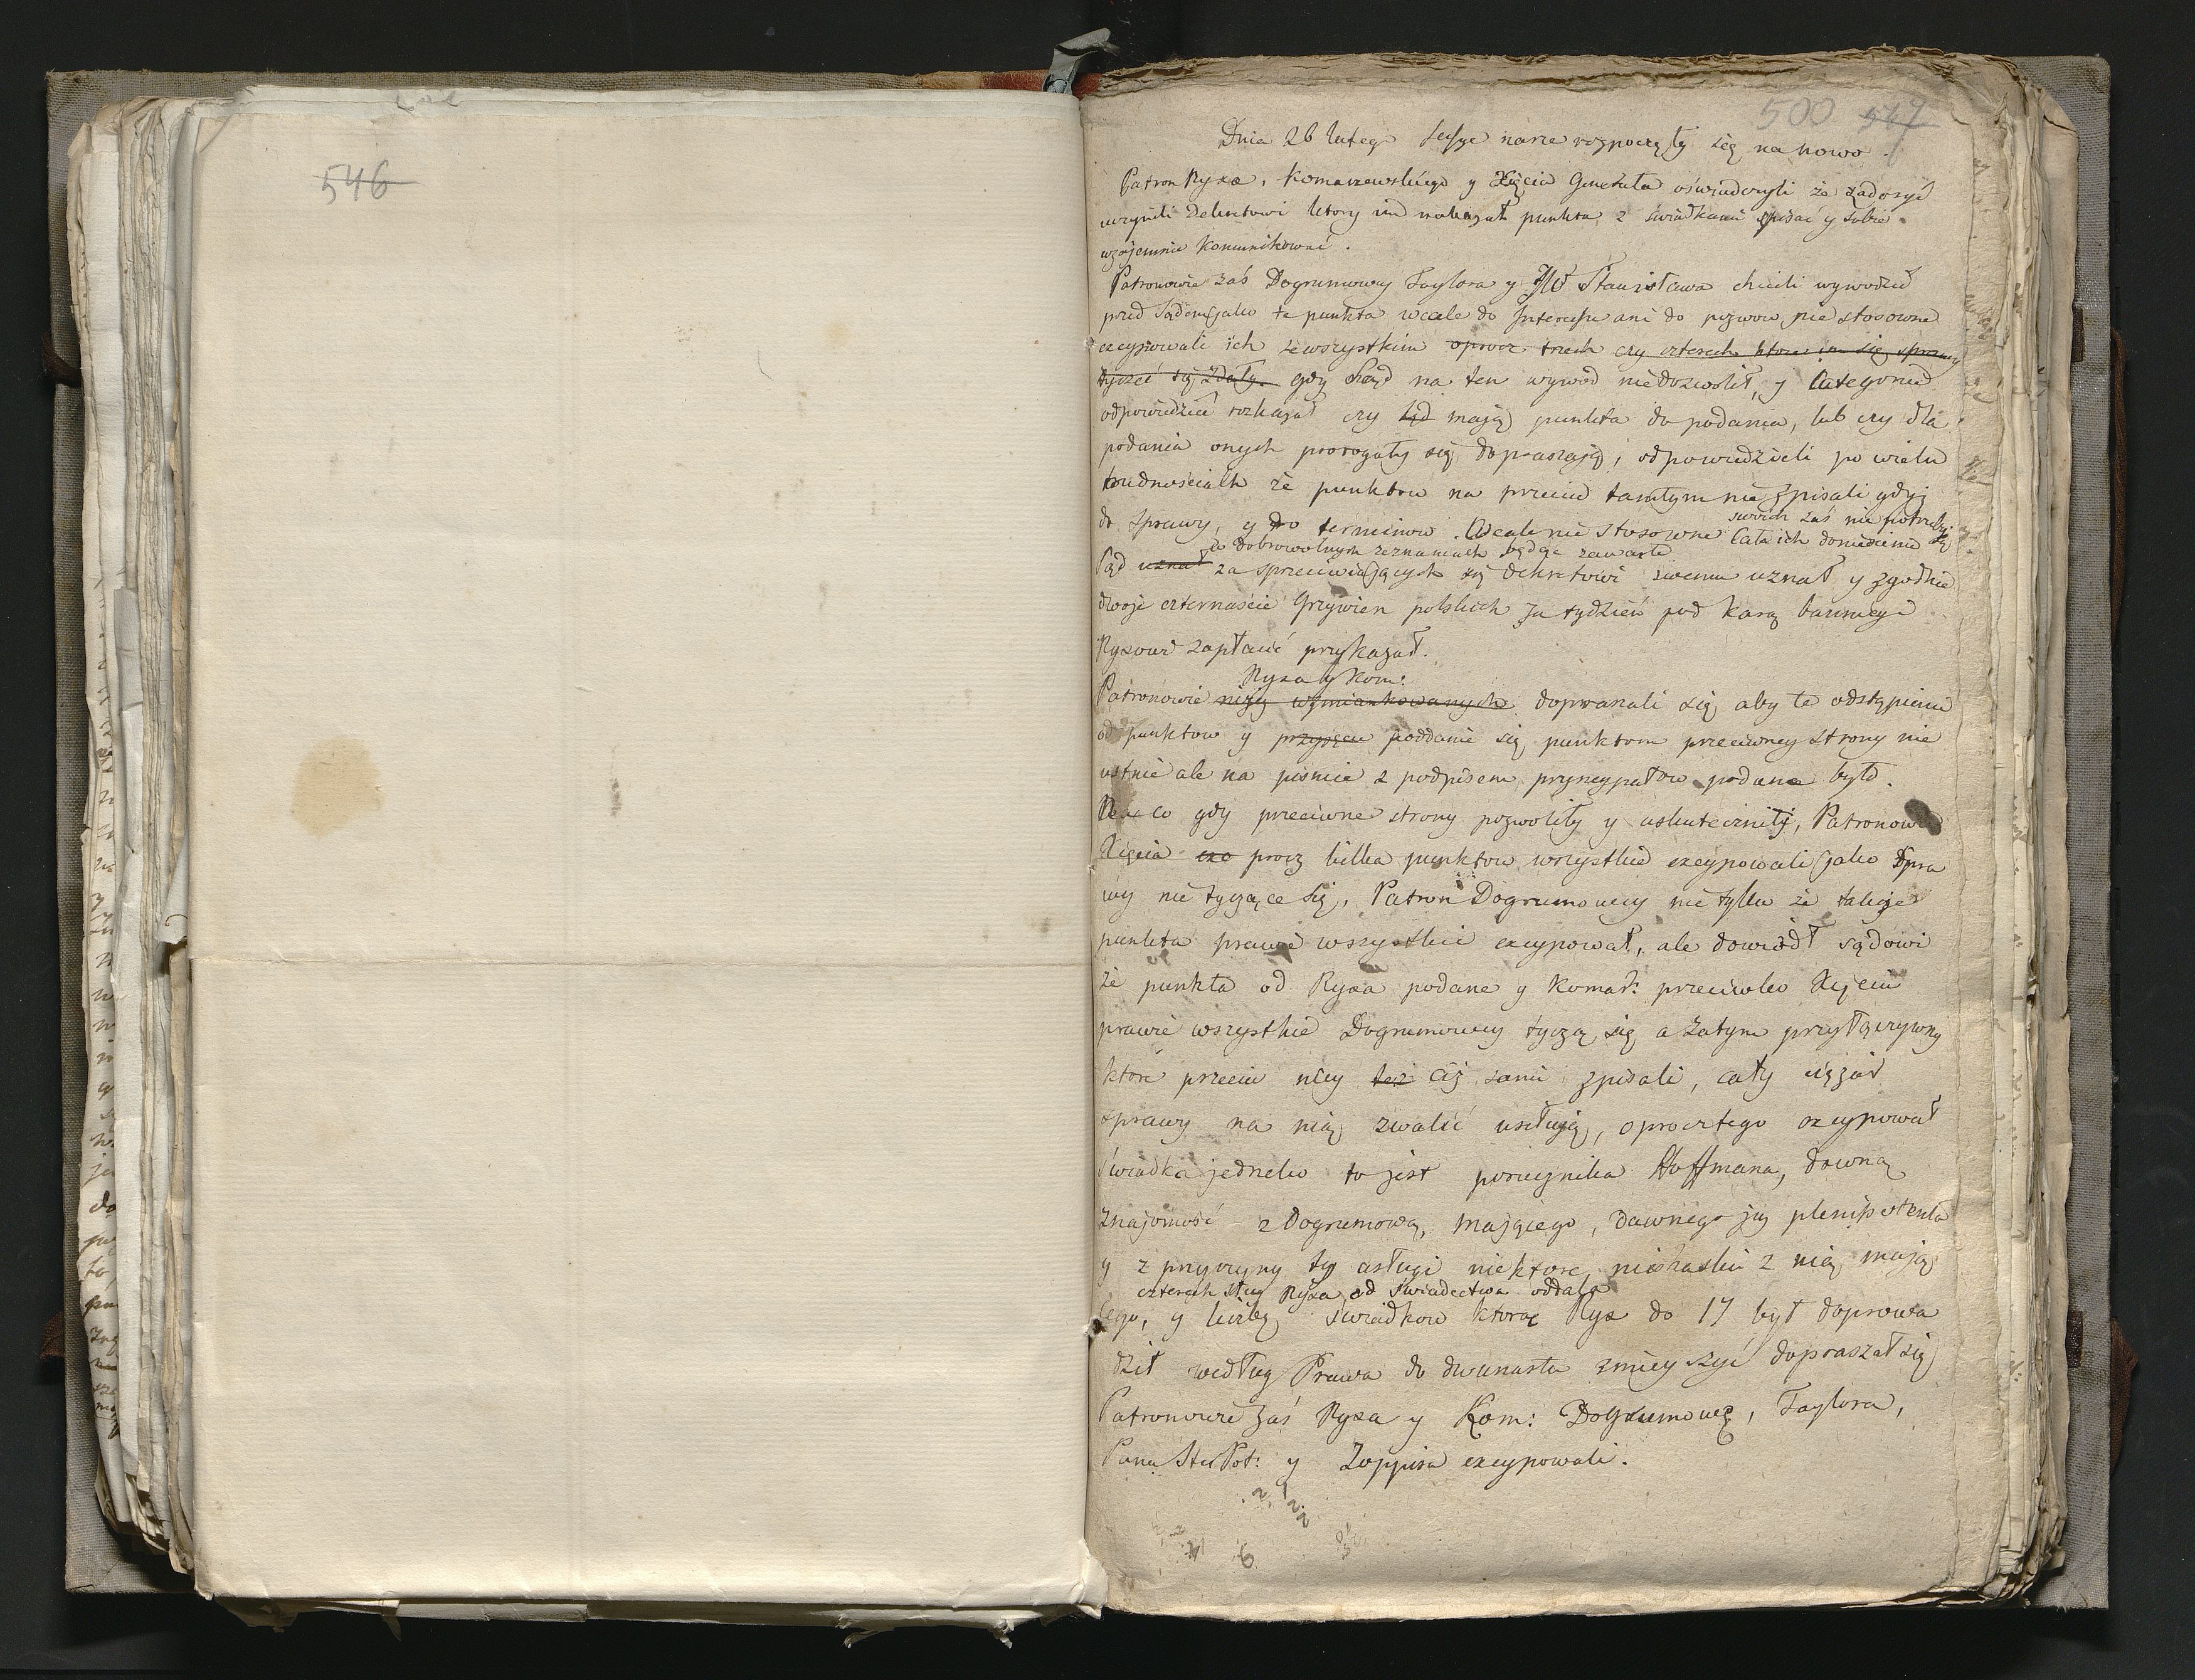 546
500 547
Dnia 26 lutego Sessye nasze rozpoczęły się na nowo.
Patron Ryxa, Komarzewskiego y Xięcia Generała oświadczyli że zadosyć
uczynili dekretowi ktory im nakazał punkta z świadkami spisać y sobie
wzajemnie komunikować.
Patronowie zaś Dogrumowy Taylora y JW Stanisława chcieli wywodzić
przed Sądem jako te punkta wcale do Interessu ani do pozwow nie stosowne
excypowali ich zewszystkim oprocz trzech czy czterech ktore im się sprawy
tyczeć się zdały. gdy Sąd na ten wywod niedozwolił, y Categorie
odpowiedzieć rozkazał czy mają punkta do podania, lub czy dla
podania onych prorogaty się dopraszają, odpowiedzieli po wielu
trudnościach że punktow na przeciw tamtym nie spisali gdyż
swoich zaś nie potrzebują
do sprawy, y do terminow wcale nie stosowne Cała ich doniesienie
w dobrowolnych zeznaniach będąc zawarte
Sąd uznał za sprzeciwiających się dekretowi swemu uznał y zgodnie
dwoje czternaście Grzywien polskich za tydzień pod karą bannicyi
Ryxowi zapłacić przykazał.
Ryxa y Kom:
Patronowie niżey wzmiankowanych dopraszali się aby te odstąpienie
od punktow y przyjęcie poddanie się punktom przeciwney strony nie
ustnie ale na pismie z podpisem pryncypałow podane było.
Na co gdy przeciwne strony pozwoliły y uskuteczniły, Patronowie
Xięcia exc procz kilka punktow wszystkie excypowali jako Spra
wy nie tyczące się, Patron Dogrumowey nie tylko że takoż
punkta prawie wszystkie excypował, ale dowiodł sądowi
że punkta od Ryxa podane y Komar: przeciwko Xięciu
prawie wszystkie Dogrumowey tyczą się a zatym przyłączywszy
ktore przeciw niey też ciż sami spisali, cały ciężar
sprawy na nią zwalić usiłują, oprocz tego excypował
świadka jednego to jest porucznika Hoffmana, dawną
znajomość z Dogrumową, mającego, dawnego jey plenipotenta
y z przyczyny tey usługi niektore niesnaski z nią mają
czterech sług Ryxa od świadectwa oddala
cego, y liczbę świadkow ktorą Ryx do 17 był doprowa
dził według Prawa do dwunastu zmieyszyć dopraszał się
Patronowie zaś Ryxa y Kom: Dogrumowę, Taylora,
Pana Sta Pot: y Zoppisa excypowali.